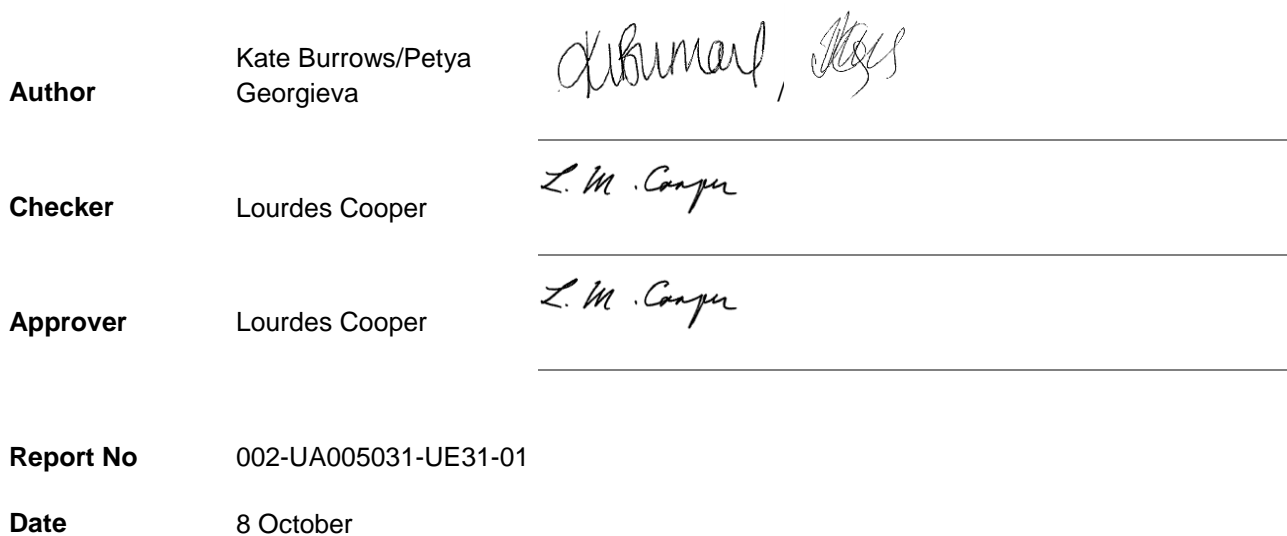 Kate Burrows/Petya
Author Georgieva
Checker Lourdes Cooper L. M. Cooper
Approver Lourdes Cooper L. M. Cooper
Report No 002-UA005031-UE31-01
Date 8 October